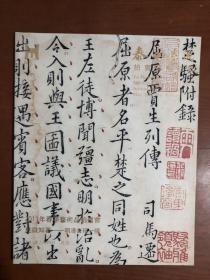 楚騷附錄
屈原賈生列傳 司馬遷
屈原者名平楚之同姓也為
王左徒博聞彊志明於治亂
令入則與王圖議國事以出
出則接遇賓客應對諸